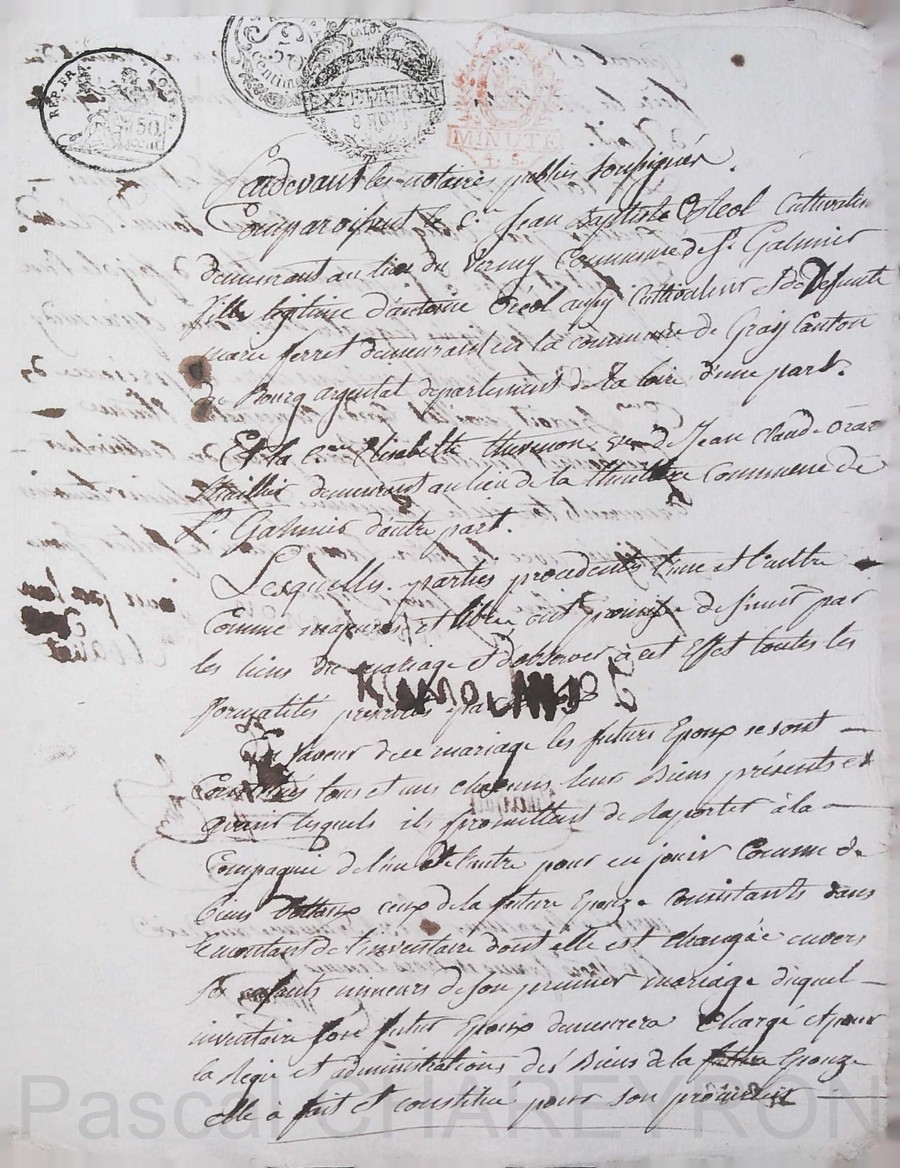 REP. FRA
50 cent
50 centim
EXPEDITION
MINUTE
4. S.
Pardevant les notaires publics soussignés
Comparoissent le Cen Jean Baptiste Oréol Cultivateur
demeurant au lieu du Vernay Commune de St Galmier
fils légitime d'antoine Oréol aussy Cultivateur et de Deffunte
marie ferret demeurant en la commune de Graix Canton
de Bourg argental département de La loire d'une part.
Et la Cenne Elisabeth thermon vve de Jean Claude
demeurant au lieu de la Commune de
St Galmier d'autre part.
Lesquelles parties procedents l'une et l'autre
Comme majeures et libres ont promise de s'unir par
les liens du mariage et d'observer à cet Effet toutes les
formalités par
En faveur de ce mariage les futurs Epoux se sont
Constitués tous et uns chacuns leur Biens présents et
avenir lesquels ils promettent de raporter à la
Compagnie de l'un et l'autre pour en jouir Comme de
biens ceux de la future Epouze consistants dans
le montant de l'inventaire dont elle est chargée envers
ses enfants mineurs de son premier mariage duquel
inventaire futur Epoux demeurera chargé et pour
la Régie et administrations des Biens de la future Epouze
elle à fait et constitué pour son procureur
Pascal CHAREYRON